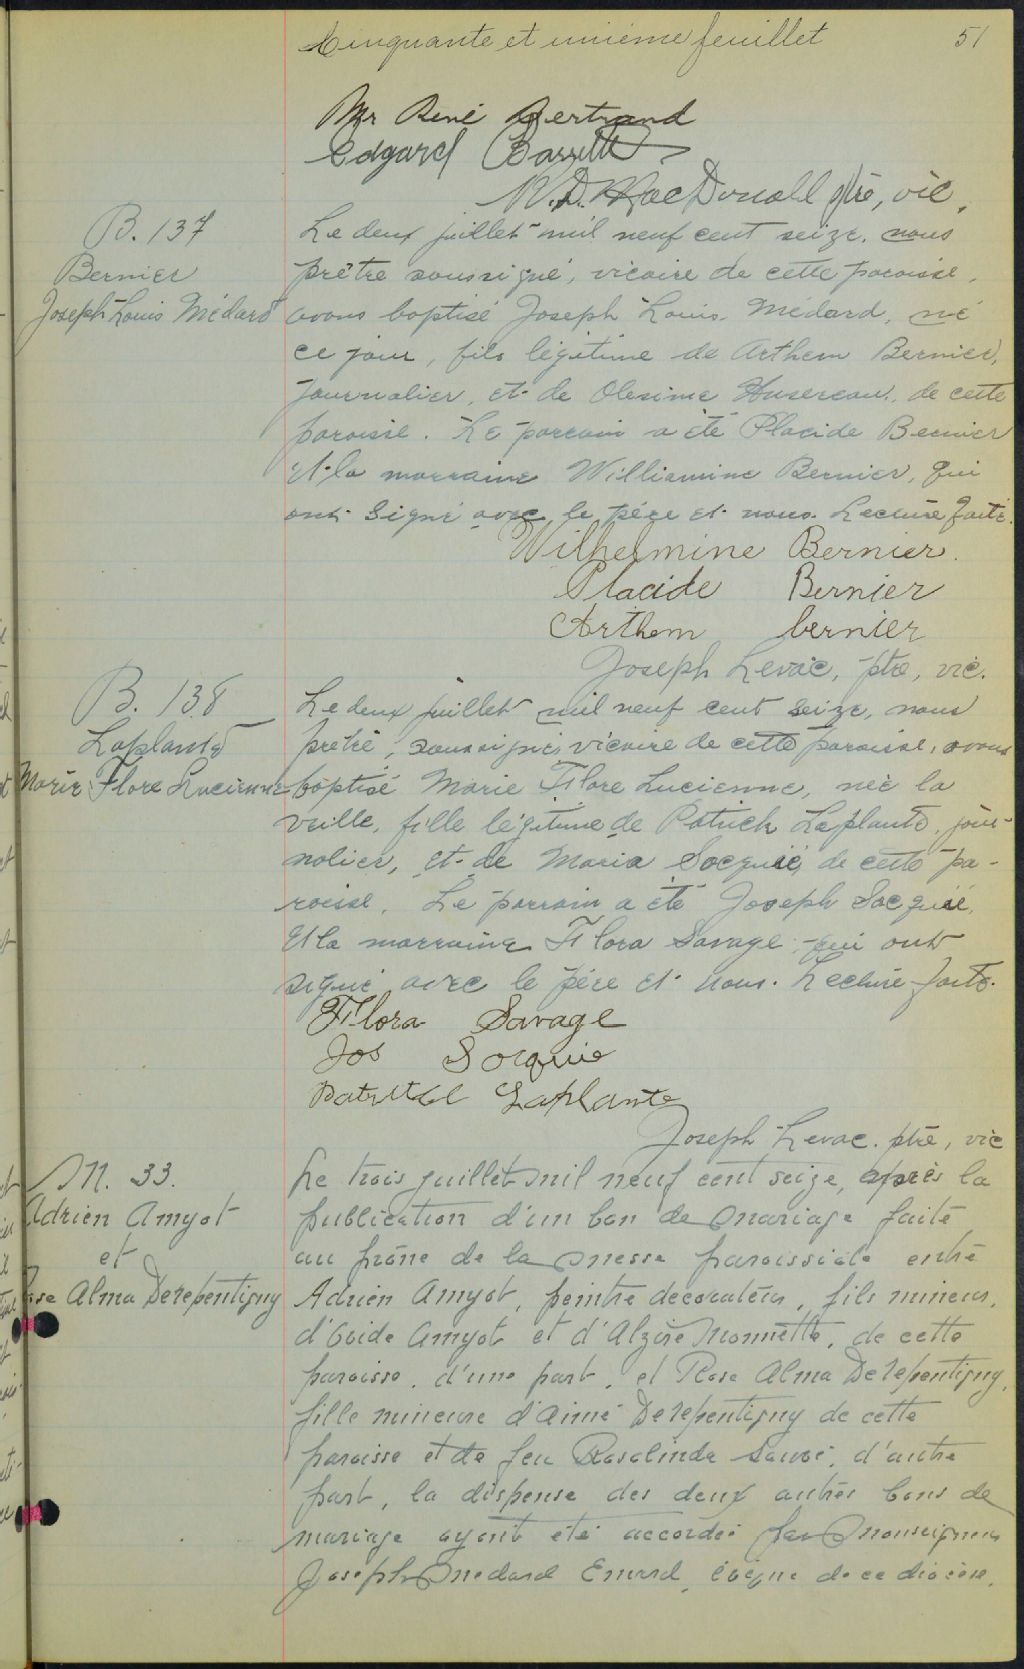 Cinquante et unième feuillet 51
Mr René Bertrand
Edgard
R. D. MacDonald ptre, vic,
B. 137
Bernier
Joseph Louis Médard
Le deux juillet mil neuf cent seize, nous
prêtre soussigné, vicaire de cette paroisse,
avons baptisé Joseph Louis Médard, né
ce jour, fils légitime de Arthem Bernier,
journalier, et de Olesime de cette
paroisse. Le parrain a été Placide Bernier
et la marraine Williamine Bernier, qui
ont signé avec le père et nous. Lecture faite.
Wilhelmine Bernier.
Placide Bernier
Arthem bernier
Joseph Levac, ptre, vic.
B. 138
Laplante
Marie Flore Lucienne
Le deux juillet mil neuf cent seize, nous
prêtre, soussigné, vicaire de cette paroisse, avons
baptisé Marie Flore Lucienne, née la
veille, fille légitime de Patrick Laplante, jour-
nalier, et de Maria Socquié, de cette pa-
roisse. Le parrain a été Joseph Socquié,
et la marraine Flora Savage qui ont
signé avec le père et nous. Lecture faite.
Flora Savage
Jos Socquie
Laplante
Joseph Levac. ptre, vic
M. 33.
Adrien Amyot
et
Rose Alma Derepentigny
Le trois juillet mil neuf cent seize, après la
publication d'un ban de mariage faite
au prône de la messe paroissiale entre
Adrien Amyot, peintre decorateur, fils mineur,
d'Ovide Amyot et d'Alzire Monnette, de cette
paroisse, d'une part, et Rose Alma Derepentigny,
fille mineure d'Aimé Derepentigny de cette
paroisse et de feu Rosalinda Sauvé, d'autre
part, la dispense des deux autres bans de
mariage ayant été accordée par Monseigneur
Joseph Medard Emard, évêque de ce diocèse,